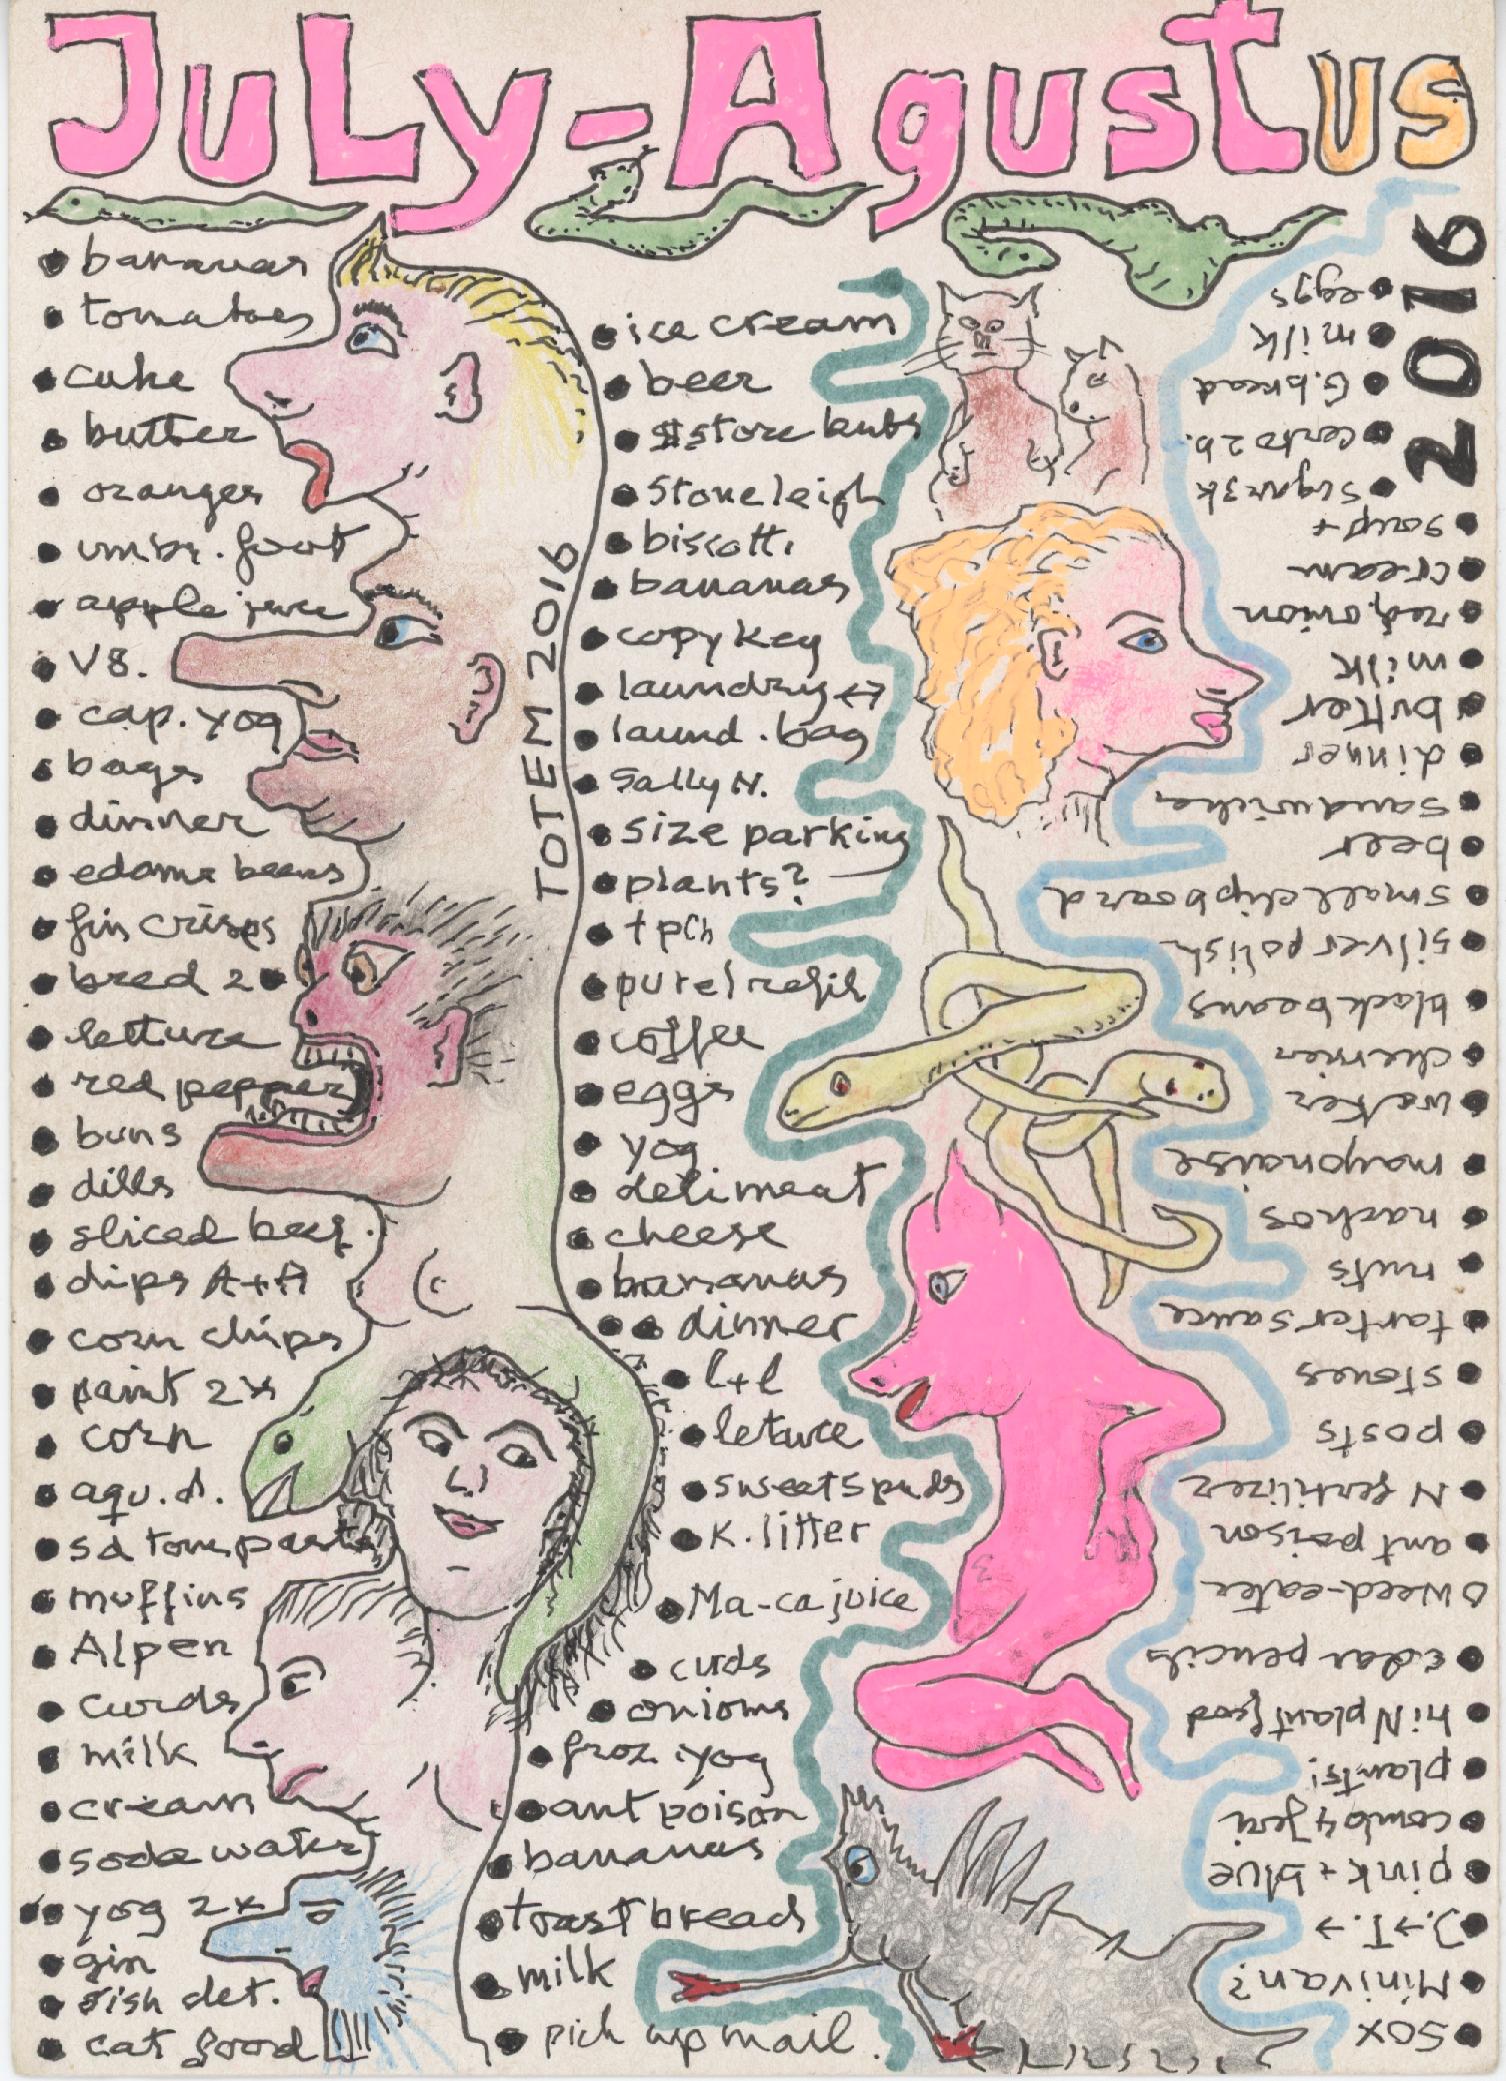 July-Agustus
2016
• bananas
• tomatoes
• cuke
• butter
• oranges
• apple juice
• V8.
• cap. yog
• bags
• dinner
• edame beans
• fin crisps
• bred 2
• lettuce
• red pepper
• buns
• dills
• sliced beef.
• chips A+A
• corn chips
• paint 2x
• corn
• aqu. d.
• muffins
• Alpen
• curds
• milk
• cream
• soda water
• yog 2x
• gin
• dish det.
• cat food
TOTEM 2016
• ice cream
• beer
• $store kubs
• Stoneleigh
• biscotti
• bananas
• copy key
• laundry ↔
• laund. bag
• Sally N.
• size parking
• plants?
• tpch
• purel refil
• coffee
• eggs
• yog
• deli meat
• cheese
• bananas
• • dinner
• l+l
• letuce
• sweet spuds
• K. litter
• Ma-ca juice
• curds
• onions
• froz. yog
• ant poison
• bananas
• toast bread
• milk
• pick up mail.
• sox
• Minivan?
• J.→T.→
• pink + blue
• comb 4 Jeni
• plants!
• hi N plant food
• Edar pencils
o weed-eater
• ant poison
• N fertilizer
• posts
• stones
• tarter sauce
• nuts
• nachos
• mayonaise
• water
• cherries
• black beans
• silver polish
• small clipboard
• beer
• sandwiches
• dinner
• butter
• milk
• red onion
• cream
• soup +
• sugar 3k
• certo 2 b.
• G. bread
• milk
• eggs